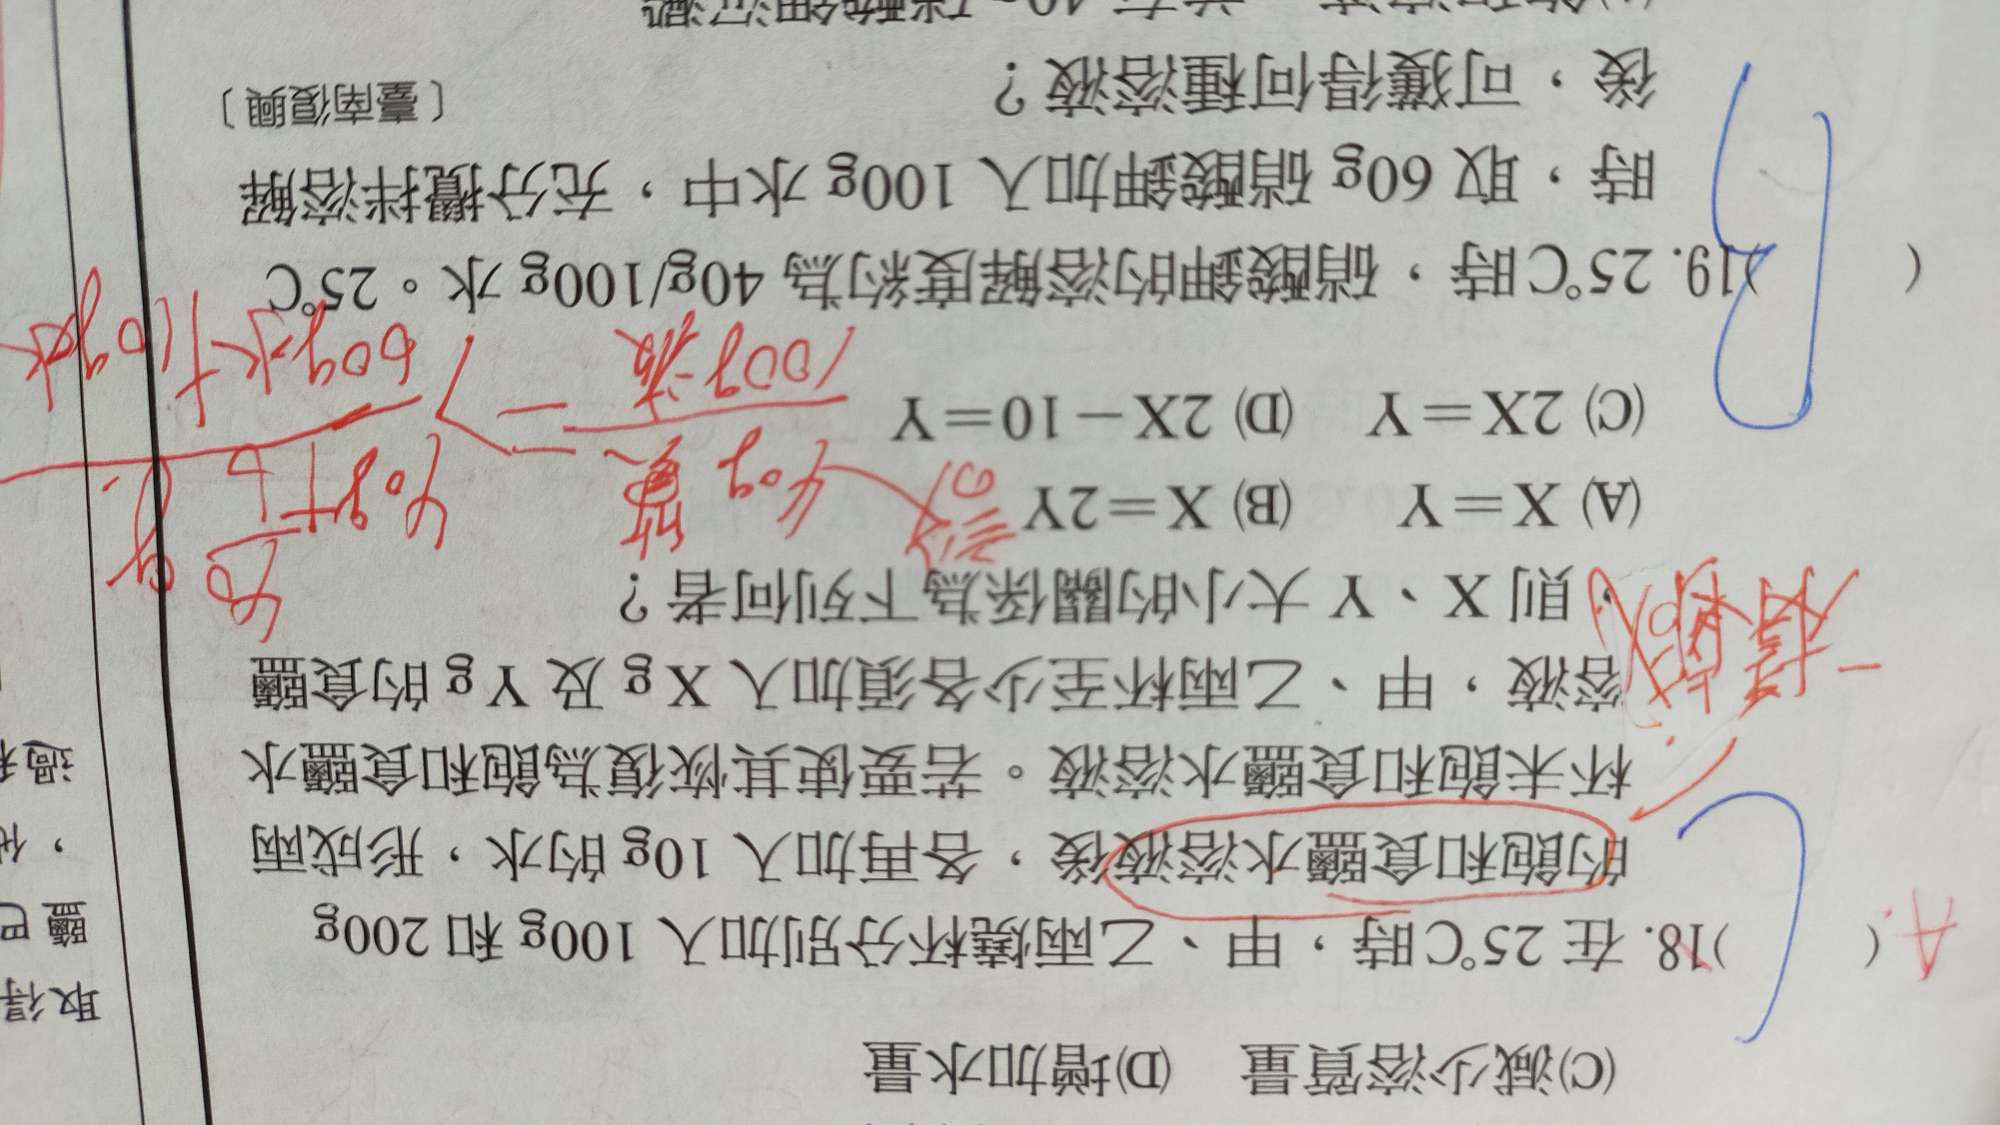 (C)減少溶質量 (D)增加水量
A
( )18. 在 25℃時，甲、乙兩燒杯分別加入 100g 和 200g
的飽和食鹽水溶液後，各再加入 10g 的水，形成兩
杯未飽和食鹽水溶液。若要使其恢復為飽和食鹽水
溶液，甲、乙兩杯至少各須加入 X g 及 Y g 的食鹽
，則 X、Y 大小的關係為下列何者？
(A) X＝Y (B) X＝2Y
(C) 2X＝Y (D) 2X－10＝Y
一樣
( )19. 25℃時，硝酸鉀的溶解度約為 40g/100g 水。25℃
時，取 60g 硝酸鉀加入 100g 水中，充分攪拌溶解
後，可獲得何種溶液？
〔臺南復興〕
B
100g液
60g水+10g水
取得
鹽巴